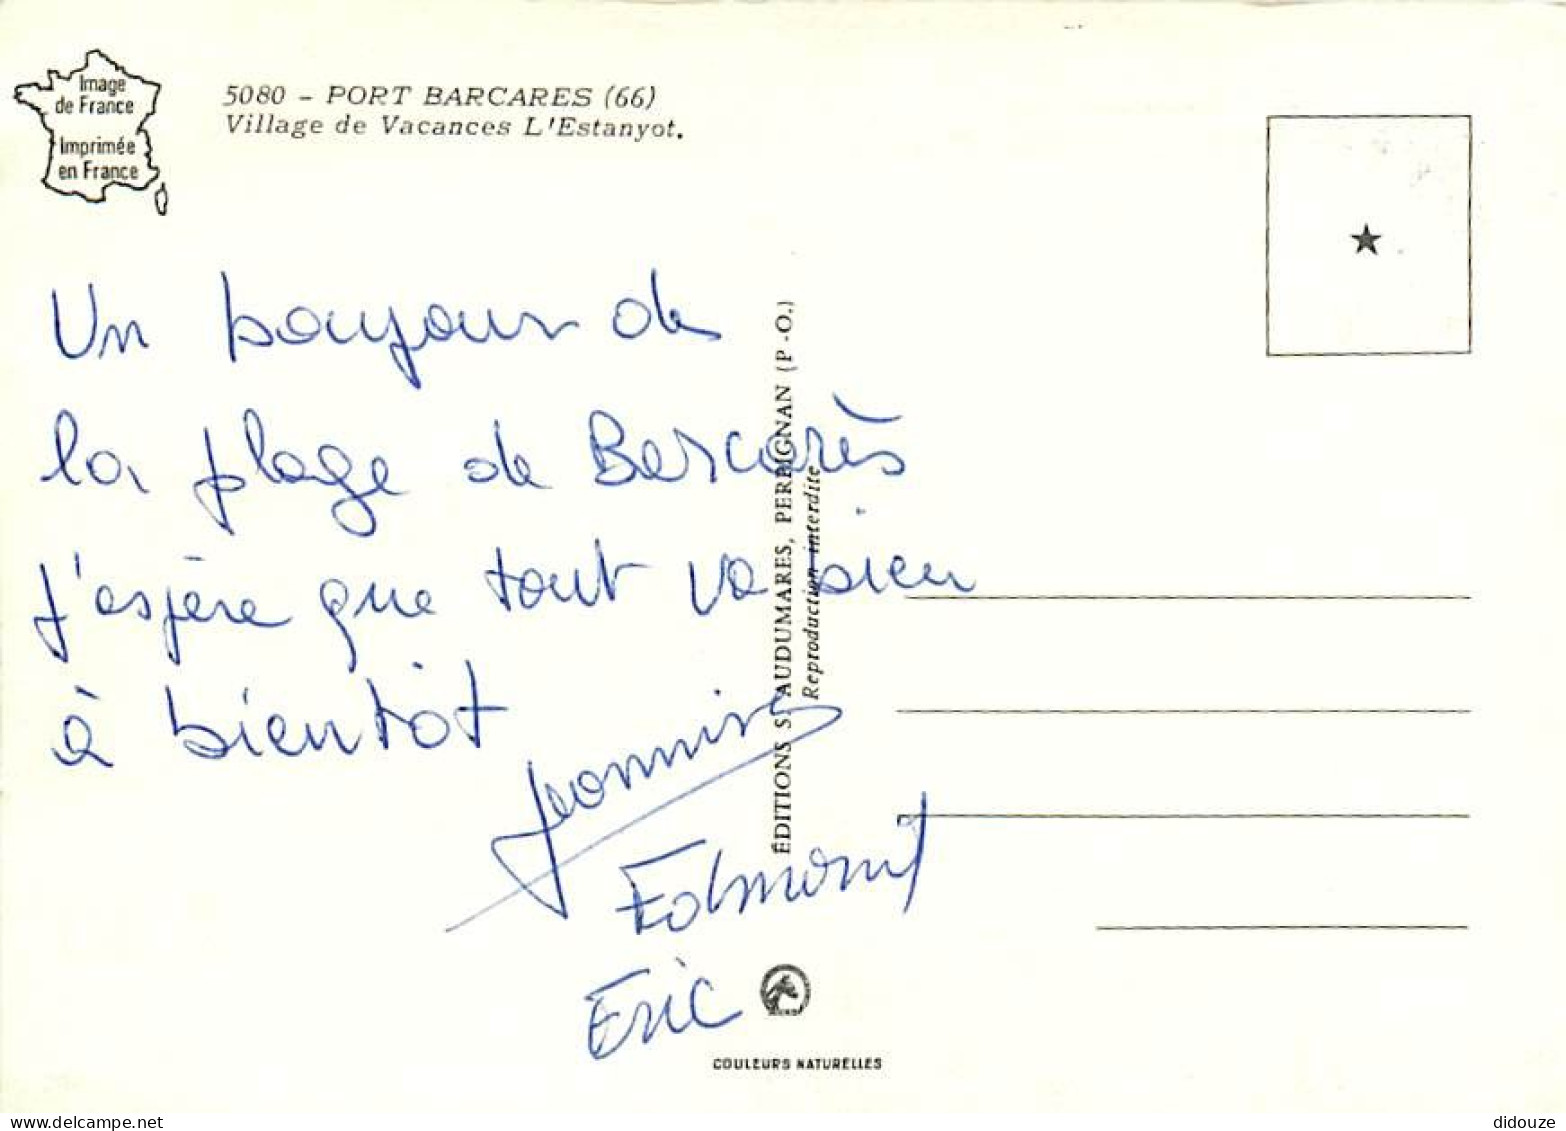 Image
de France
Imprimée
en France
5080 - PORT BARCARES (66)
Village de Vacances L'Estanyot.
Un bonjour de
la plage de Barcarès
J'espère que tout va bien
à bientôt
Jeannine
Edmond
Eric
ÉDITIONS S. AUDUMARES, PERPIGNAN (P.-O.)
Reproduction interdite
COULEURS NATURELLES
didouze